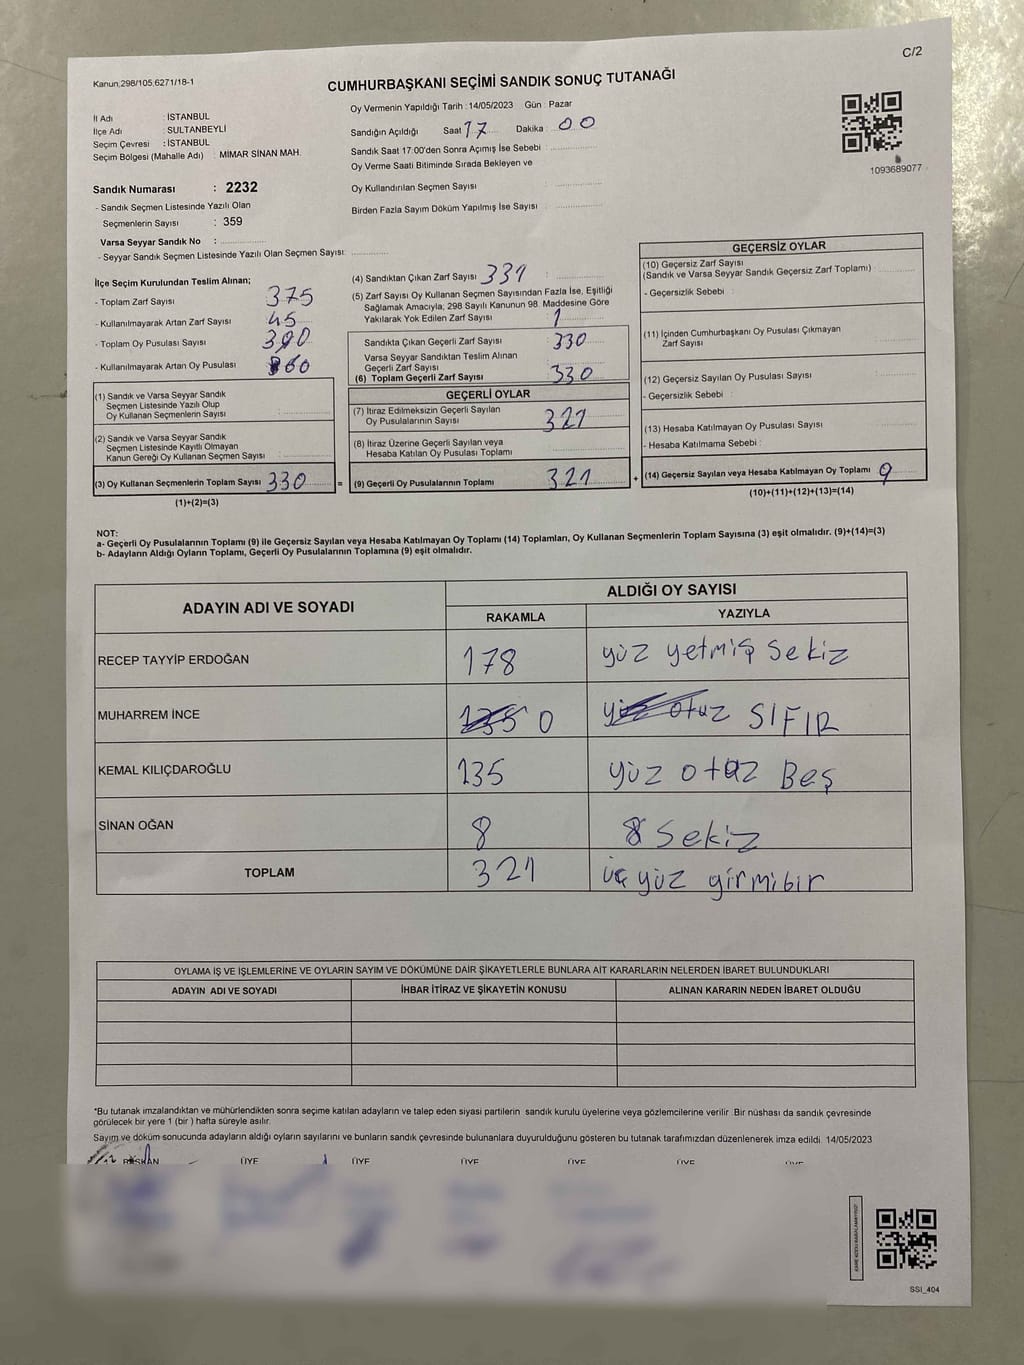 C/2
Kanun;298/105,6271/18-1
CUMHURBAŞKANI SEÇİMİ SANDIK SONUÇ TUTANAĞI
İl Adı : İSTANBUL
İlçe Adı : SULTANBEYLİ
Seçim Çevresi : İSTANBUL
Seçim Bölgesi (Mahalle Adı) : MİMAR SİNAN MAH.
Oy Vermenin Yapıldığı Tarih : 14/05/2023 Gün : Pazar
Sandığın Açıldığı Saat 17 Dakika : 00
Sandık Saat 17:00'den Sonra Açılmış İse Sebebi :
Oy Verme Saati Bitiminde Sırada Bekleyen ve
Oy Kullandırılan Seçmen Sayısı :
Birden Fazla Sayım Döküm Yapılmış İse Sayısı :
1093689077
Sandık Numarası : 2232
- Sandık Seçmen Listesinde Yazılı Olan
Seçmenlerin Sayısı : 359
Varsa Seyyar Sandık No :
- Seyyar Sandık Seçmen Listesinde Yazılı Olan Seçmen Sayısı:
İlçe Seçim Kurulundan Teslim Alınan;
- Toplam Zarf Sayısı 375
- Kullanılmayarak Artan Zarf Sayısı 45
- Toplam Oy Pusulası Sayısı 390
- Kullanılmayarak Artan Oy Pusulası 60
(1) Sandık ve Varsa Seyyar Sandık
Seçmen Listesinde Yazılı Olup
Oy Kullanan Seçmenlerin Sayısı :
(2) Sandık ve Varsa Seyyar Sandık
Seçmen Listesinde Kayıtlı Olmayan
Kanun Gereği Oy Kullanan Seçmen Sayısı :
(3) Oy Kullanan Seçmenlerin Toplam Sayısı : 330 =
(1)+(2)=(3)
(4) Sandıktan Çıkan Zarf Sayısı 331 :
(5) Zarf Sayısı Oy Kullanan Seçmen Sayısından Fazla İse, Eşitliği
Sağlamak Amacıyla; 298 Sayılı Kanunun 98. Maddesine Göre
Yakılarak Yok Edilen Zarf Sayısı : 1
Sandıkta Çıkan Geçerli Zarf Sayısı : 330
Varsa Seyyar Sandıktan Teslim Alınan
Geçerli Zarf Sayısı :
(6) Toplam Geçerli Zarf Sayısı : 330
GEÇERLİ OYLAR
(7) İtiraz Edilmeksizin Geçerli Sayılan
Oy Pusulalarının Sayısı : 321
(8) İtiraz Üzerine Geçerli Sayılan veya
Hesaba Katılan Oy Pusulası Toplamı :
(9) Geçerli Oy Pusulalarının Toplamı : 321 +
GEÇERSİZ OYLAR
(10) Geçersiz Zarf Sayısı
(Sandık ve Varsa Seyyar Sandık Geçersiz Zarf Toplamı) :
- Geçersizlik Sebebi :
(11) İçinden Cumhurbaşkanı Oy Pusulası Çıkmayan
Zarf Sayısı :
(12) Geçersiz Sayılan Oy Pusulası Sayısı :
- Geçersizlik Sebebi :
(13) Hesaba Katılmayan Oy Pusulası Sayısı :
- Hesaba Katılmama Sebebi :
(14) Geçersiz Sayılan veya Hesaba Katılmayan Oy Toplamı : 9
(10)+(11)+(12)+(13)=(14)
NOT:
a- Geçerli Oy Pusulalarının Toplamı (9) ile Geçersiz Sayılan veya Hesaba Katılmayan Oy Toplamı (14) Toplamları, Oy Kullanan Seçmenlerin Toplam Sayısına (3) eşit olmalıdır. (9)+(14)=(3)
b- Adayların Aldığı Oyların Toplamı, Geçerli Oy Pusulalarının Toplamına (9) eşit olmalıdır.
ADAYIN ADI VE SOYADI ALDIĞI OY SAYISI
RAKAMLA YAZIYLA
RECEP TAYYİP ERDOĞAN 178 yüz yetmiş Sekiz
MUHARREM İNCE 135 0 yüz otuz SIFIR
KEMAL KILIÇDAROĞLU 135 yüz otuz Beş
SİNAN OĞAN 8 8 Sekiz
TOPLAM 321 üç yüz girmibir
OYLAMA İŞ VE İŞLEMLERİNE VE OYLARIN SAYIM VE DÖKÜMÜNE DAİR ŞİKAYETLERLE BUNLARA AİT KARARLARIN NELERDEN İBARET BULUNDUKLARI
ADAYIN ADI VE SOYADI İHBAR İTİRAZ VE ŞİKAYETİN KONUSU ALINAN KARARIN NEDEN İBARET OLDUĞU
*Bu tutanak imzalandıktan ve mühürlendikten sonra seçime katılan adayların ve talep eden siyasi partilerin sandık kurulu üyelerine veya gözlemcilerine verilir. Bir nüshası da sandık çevresinde
görülecek bir yere 1 (bir ) hafta süreyle asılır.
Sayım ve döküm sonucunda adayların aldığı oyların sayılarını ve bunların sandık çevresinde bulunanlara duyurulduğunu gösteren bu tutanak tarafımızdan düzenlenerek imza edildi. 14/05/2023
BAŞKAN ÜYE ÜYE ÜYE ÜYE ÜYE ÜYE
SSI_404